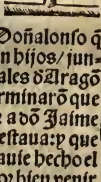 Doñalonso q̃
n hijos/jun-
ales d̃ Aragõ
rminarõ que
e a dõ Jaime
estaua: y que
auíe hecho el
or bien venir